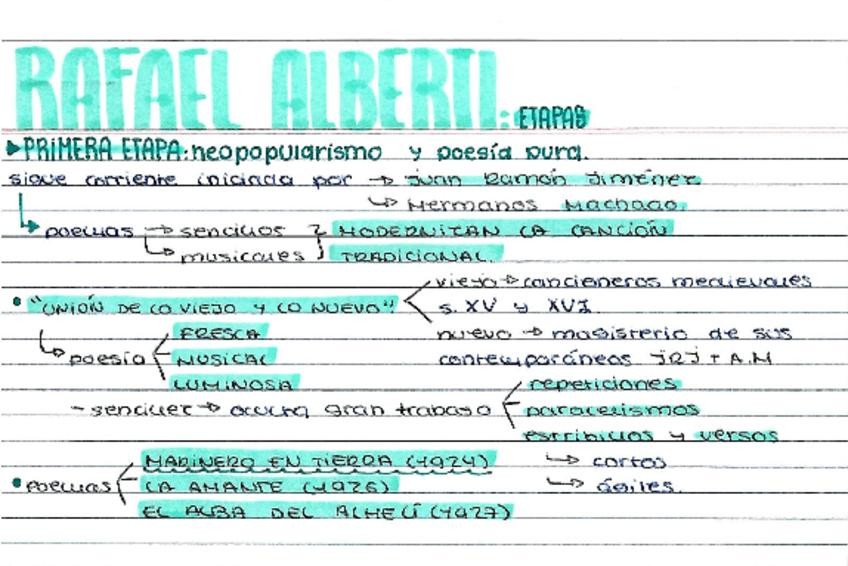 RAFAEL ALBERTI: ETAPAS
▸PRIMERA ETAPA: neopopularismo y poesía pura.
sigue corriente iniciada por → Juan Ramón Jiménez
↳ Hermanos Machado.
↳ poemas → sencillos } MODERNIZAN LA CANCIÓN
↳ musicales } TRADICIONAL.
• "UNIÓN DE LO VIEJO Y LO NUEVO" < viejo → cancioneros medievales
s. XV y XVI.
nuevo → magisterio de sus
contemporáneos JRJ + A.M
↳ poesía < FRESCA
MUSICAL
LUMINOSA
- sencillez → oculta gran trabajo < repeticiones
paralelismos
estribillos y versos
↳ cortos
↳ ágiles.
• poemas < MARINERO EN TIERRA (1924)
LA AMANTE (1926)
EL ALBA DEL ALHELÍ (1927)